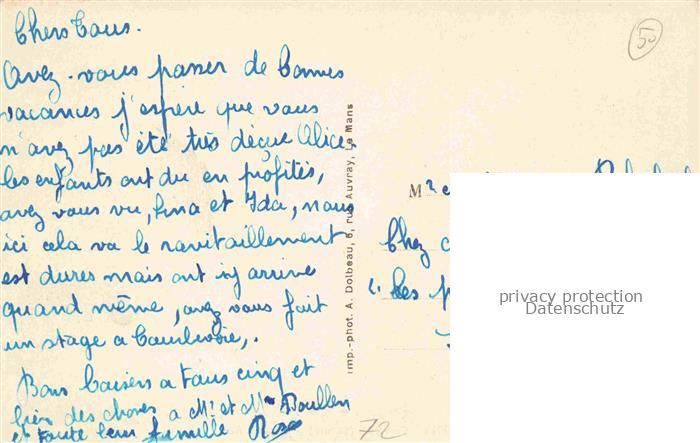 Chers Tous.
Avez-vous passer de bonnes
vacances j'espère que vous
n'avez pas été très déçue Alice,
les enfants ont du en profités,
avez vous vu, Lina et Ida, nous
ici cela va le ravitaillement
est dures mais ont iy arrive
quand même, avez vous fait
un stage a
Bons baisers a tous cinq et
bien des choses a Mr et Mme
et toute leur famille Rose
50
Imp.-phot. A. Dolbeau, 6, rue Auvray, Le Mans
M
Chez
Les
privacy protection
Datenschutz
72